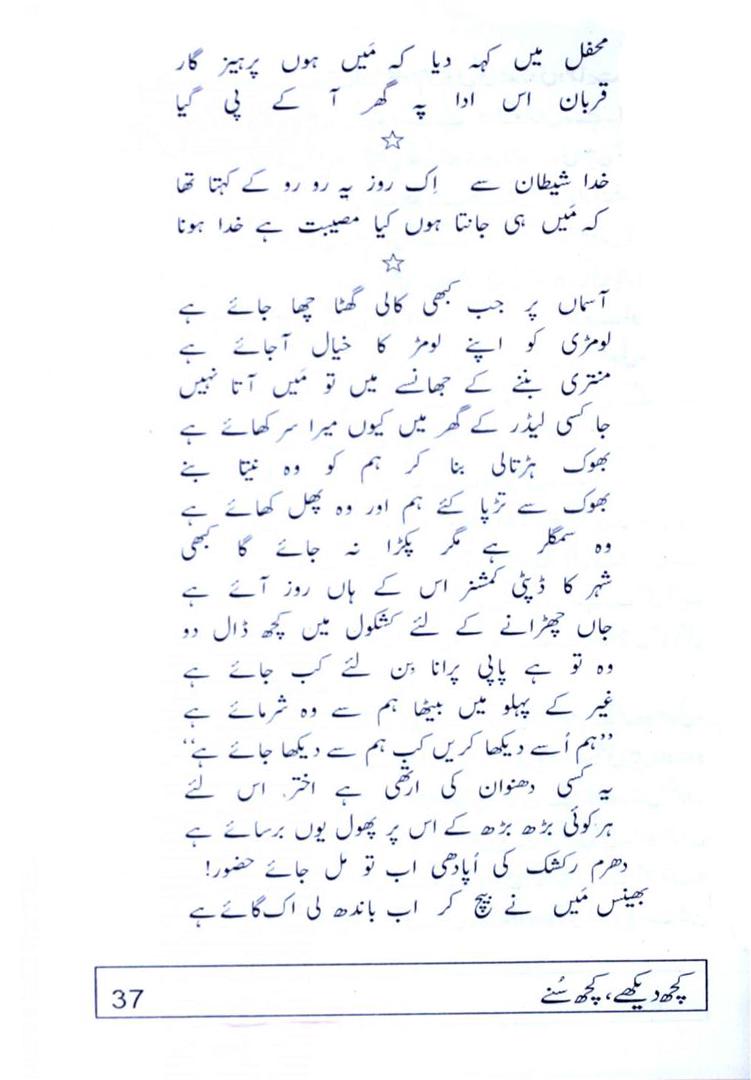 محفل میں کہہ دیا کہ مَیں ہوں پرہیز گار
قربان اس ادا پہ گھر آ کے پی گیا
☆
خدا شیطان سے اِک روز یہ رو رو کے کہتا تھا
کہ مَیں ہی جانتا ہوں کیا مصیبت ہے خدا ہونا
☆
آسماں پر جب کبھی کالی گھٹا چھا جائے ہے
لومڑی کو اپنے لومڑ کا خیال آجائے ہے
منتری بننے کے جھانسے میں تو مَیں آتا نہیں
جا کسی لیڈر کے گھر میں کیوں میرا سر کھائے ہے
بھوک ہڑتالی بنا کر ہم کو وہ نیتا بنے
بھوک سے تڑپا کئے ہم اور وہ پھل کھائے ہے
وہ سمگلر ہے مگر پکڑا نہ جائے گا کبھی
شہر کا ڈپٹی کمشنر اس کے ہاں روز آئے ہے
جاں چھڑانے کے لئے کشکول میں کچھ ڈال دو
وہ تو ہے پاپی پرانا بِن لئے کب جائے ہے
غیر کے پہلو میں بیٹھا ہم سے وہ شرمائے ہے
”ہم اُسے دیکھا کریں کب ہم سے دیکھا جائے ہے“
یہ کسی دھنوان کی ارتھی ہے اختر اس لئے
ہر کوئی بڑھ بڑھ کے اس پر پھول یوں برسائے ہے
دھرم رکشک کی اُپادھی اب تو مل جائے حضور!
بھینس مَیں نے بیچ کر اب باندھ لی اک گائے ہے
کچھ دیکھے، کچھ سُنے
37